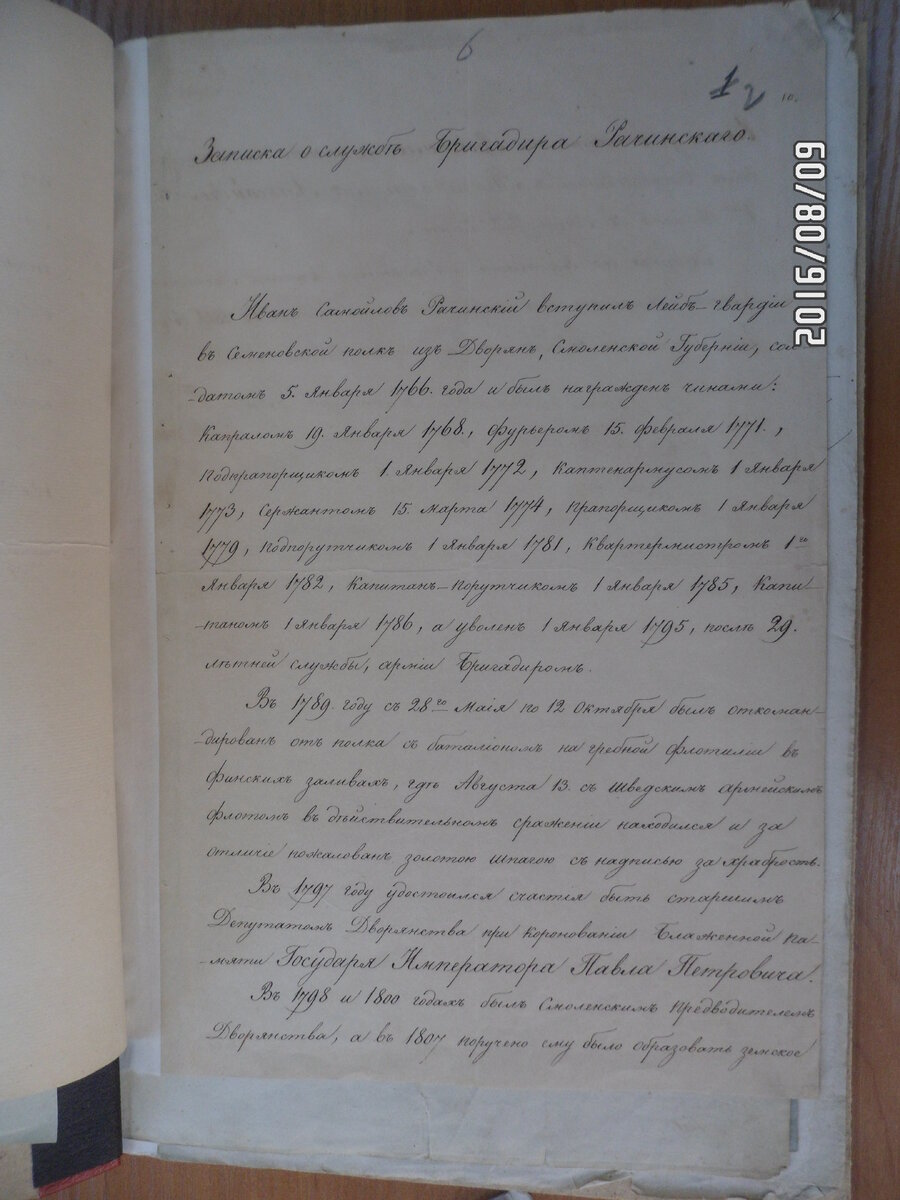 6
1 2 10.
Записка о службѣ Бригадира Рачинскаго.
2019/08/09
Иванъ Самойловъ Рачинскій вступилъ Лейбъ-гвардіи
въ Семеновской полкъ изъ Дворянъ, Смоленской Губерніи, сол-
-датомъ 5. Января 1766. года и былъ награжденъ чинами:
Капраломъ 19. Января 1768., Фурьеромъ 15. Февраля 1771.,
Подпрапорщикомъ 1. Января 1772, Каптенармусомъ 1 Января
1773, Сержантомъ 15. Марта 1774, Прапорщикомъ 1 Января
1779, Подпорутчикомъ 1 Января 1781, Квартермистромъ 1го
Января 1782, Капитанъ-Порутчикомъ 1 Января 1785, Капи-
-таномъ 1 Января 1786, а уволенъ 1 Января 1795, послѣ 29.
лѣтней службы, арміи Бригадиромъ.
Въ 1789. году съ 28го Маія по 12 Октября былъ откоман-
-дированъ отъ полка съ баталіономъ на гребной Флотиліи въ
Финскихъ заливахъ, гдѣ Августа 13. съ Шведскимъ армейскимъ
флотомъ въ дѣйствительномъ сраженіи находился и за
отличіе пожалованъ золотою шпагою съ надписью за храбрость.
Въ 1797 году удостоился счастія быть старшимъ
Депутатомъ Дворянства при короновании Блаженной па-
-мяти Государя Императора Павла Петровича.
Въ 1798 и 1800 годахъ былъ Смоленскимъ Предводителемъ
Дворянства, а въ 1807 поручено ему было образовать земское